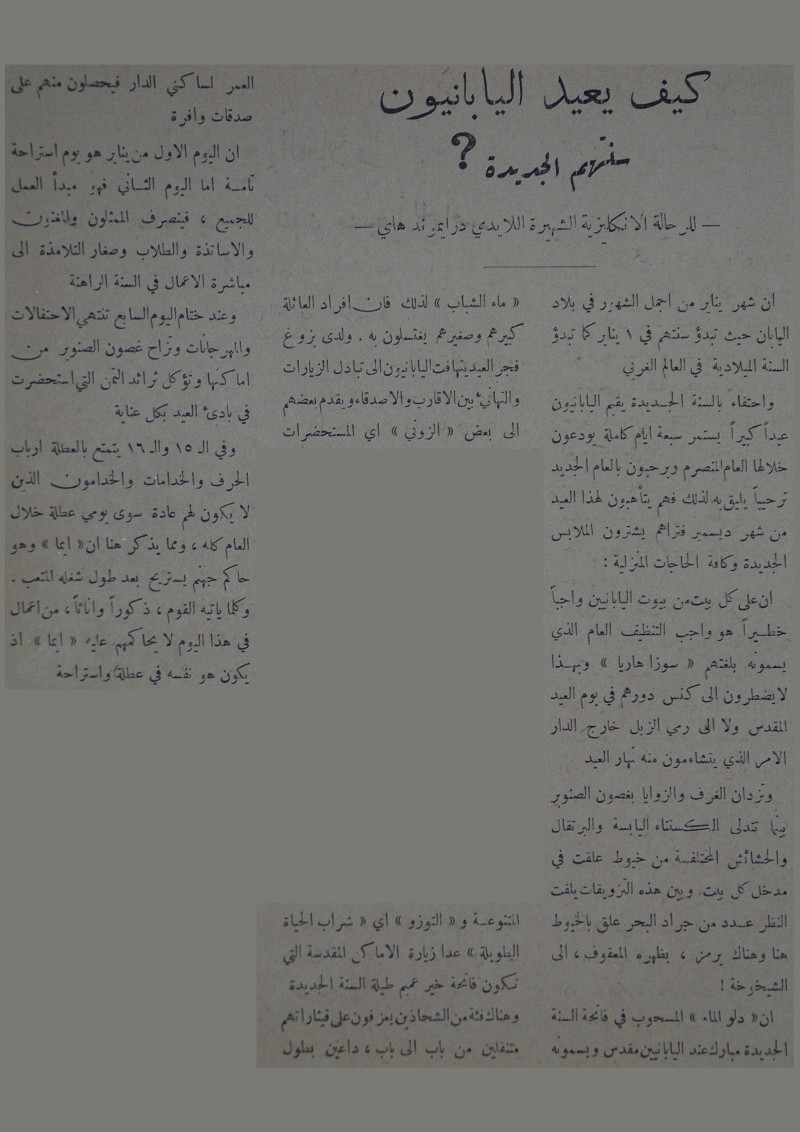 كيف يعيد اليابانيون
سنتهم الجديدة ?
— للرحالة الانكليزية الشهيرة اللايدي درايموند هاي —
ان شهر يناير من اجمل الشهور في بلاد
اليابان حيث تبدؤ سنتهم في ١ يناير كما تبدؤ
السنة الميلادية في العالم الغربي
واحتفاء بالسنة الجديدة يقيم اليابانيون
عيداً كبيراً يستمر سبعة ايام كاملة يودعون
خلالها العام المنصرم ويرحبون بالعام الجديد
ترحيباً يليق به لذلك فهم يتأهبون لهذا العيد
من شهر ديسمبر فتراهم يشترون الملابس
الجديدة وكافة الحاجات المنزلية :
ان على كل بيت من بيوت اليابانيين واجباً
خطيراً هو واجب التنظيف العام الذي
يسمونه بلغتهم « سوزا هاريا » وبهذا
لا يضطرون الى كنس دورهم في يوم العيد
المقدس ولا الى رمي الزبل خارج الدار
الامر الذي يتشاءمون منه نهار العيد
وتزدان الغرف والزوايا بغصون الصنوبر
بينما تتدلى الكستناء اليابسة والبرتقال
والحشائش المختلفة من خيوط علقت في
مدخل كل بيت. وبين هذه التزويقات يلفت
النظر عدد من جراد البحر علق بالخيوط
هنا وهناك يرمز ، بظهره المعقوف ، الى
الشيخوخة !
ان « دلو الماء » المسحوب في فاتحة السنة
الجديدة مبارك عند اليابانيين مقدس ويسمونه
« ماء الشباب » لذلك فان افراد العائلة
كبيرهم وصغيرهم يغتسلون به . ولدى بزوغ
فجر العيد يتهافت اليابانيون الى تبادل الزيارات
والتهانئ بين الاقارب والاصدقاء ويقدم بعضهم
الى بعض « الزوني » اي المستحضرات
المتنوعة و « التوزو » اي « شراب الحياة
الطويلة » عدا زيارة الاماكن المقدسة التي
تكون فاتحة خير عميم طيلة السنة الجديدة
وهناك فئة من الشحاذين يعزفون على قيثاراتهم
متنقلين من باب الى باب ، داعين بطول
العمر لساكني الدار فيحصلون منهم على
صدقات وافرة
ان اليوم الاول من يناير هو يوم استراحة
تامة اما اليوم الثاني فهو مبدأ العمل
للجميع ، فينصرف الممثلون والمغنون
والاساتذة والطلاب وصغار التلامذة الى
مباشرة الاعمال في السنة الراهنة
وعند ختام اليوم السابع تنتهي الاحتفالات
والمهرجانات وتزاح غصون الصنوبر من
اماكنها وتؤكل ثرائد التمن التي استحضرت
في بادئ العيد بكل عناية
وفي الـ ١٥ والـ ١٦ يتمتع بالعطلة ارباب
الحرف والخدامات والخدامون الذين
لا يكون لهم عادة سوى يومي عطلة خلال
العام كله ، ومما يذكر هنا ان « ايما » وهو
حاكم جهنم يستريح بعد طول شغله المتعب .
وكلما ياتيه القوم ، ذكوراً واناثاً ، من اعمال
في هذا اليوم لا يحاكمهم عليه « ايما » اذ
يكون هو نفسه في عطلة واستراحة